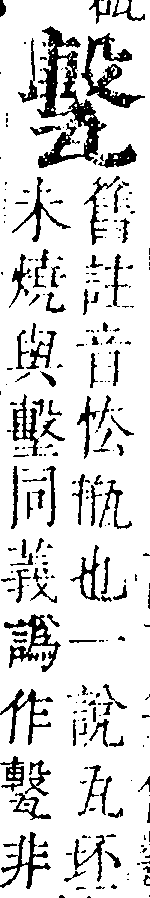 舊註音忪瓶也一說瓦坯
未燒與墼同義譌作非